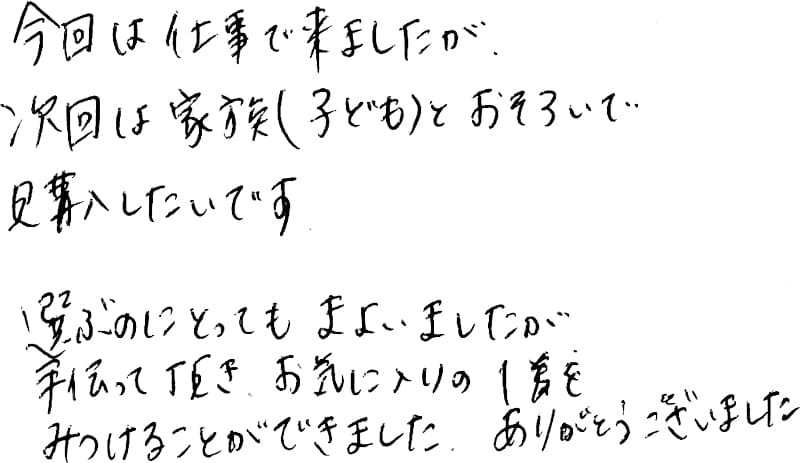 今回は仕事で来ましたが、
次回は家族(子ども)とおそろいで
購入したいです
選ぶのにとってもまよいましたが
手伝って頂き、お気に入りの1着を
みつけることができました. ありがとうございました